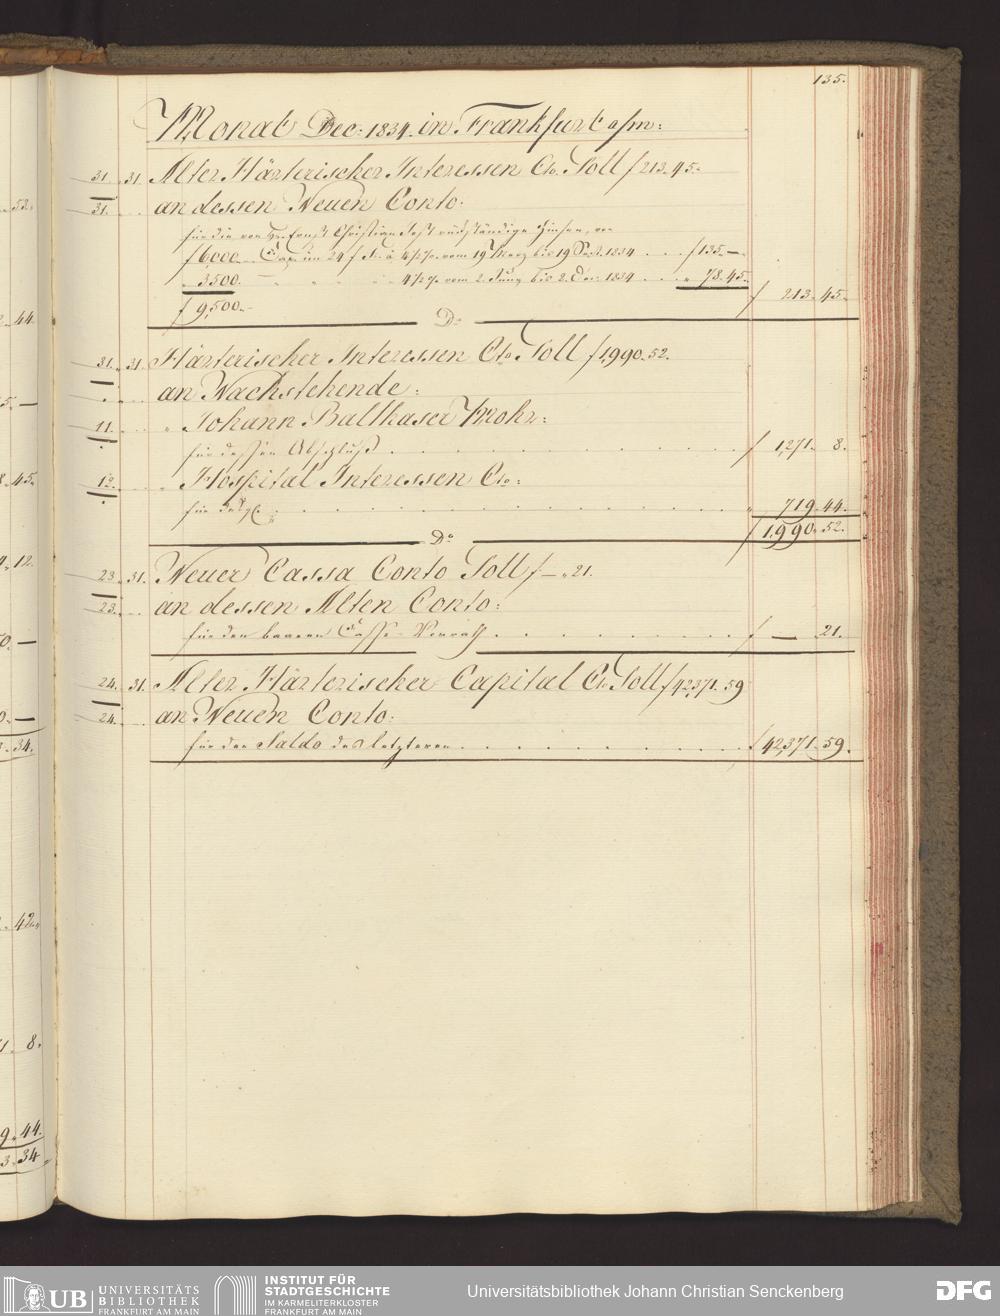 135.
Monat Dec: 1834. in Frankfurt a/m:
31. 31. Alter Härterischer Interessen Cto. Soll f 213. 45.
31. an dessen Neuen Conto:
für die von Hr. Ernst Christian rückständige Zinsen, von
f 6000. – Cap. im 24 f à 4 1/2 % vom 19 Merz bis 19 Sept. 1834 f 135. –
" 3500. 4 1/2 % vom 2. Juny bis 2. Dec: 1834 " 78. 45.
f 213. 45.
f 9,500. –
Do
31. 31. Härterischer Interessen Cto. Soll f 1,990. 52.
an Nachstehende:
11. " Johann Balthaser Mohr:
für dessen Abschluß f 1,271. 8.
12. " Hospital Interessen Cto:
für " 719. 44.
f 1,990. 52.
Do
23. 31. Neuer Cassa Conto Soll f –. 21.
23. an dessen Alten Conto:
für den baaren Cassa-Vorrath f – 21.
24. 31. Alter Härterischer Capital Cto Soll f 42,371. 59
24. an Neuen Conto:
für den Saldo des letzteren f 42,371. 59.
53.
44.
5. –
45.
12.
0. –
0. –
34.
42.
1. 8.
9. 44.
3. 34
UB UNIVERSITÄTS
BIBLIOTHEK
FRANKFURT AM MAIN
INSTITUT FÜR
STADTGESCHICHTE
IM KARMELITERKLOSTER
FRANKFURT AM MAIN
Universitätsbibliothek Johann Christian Senckenberg
DFG